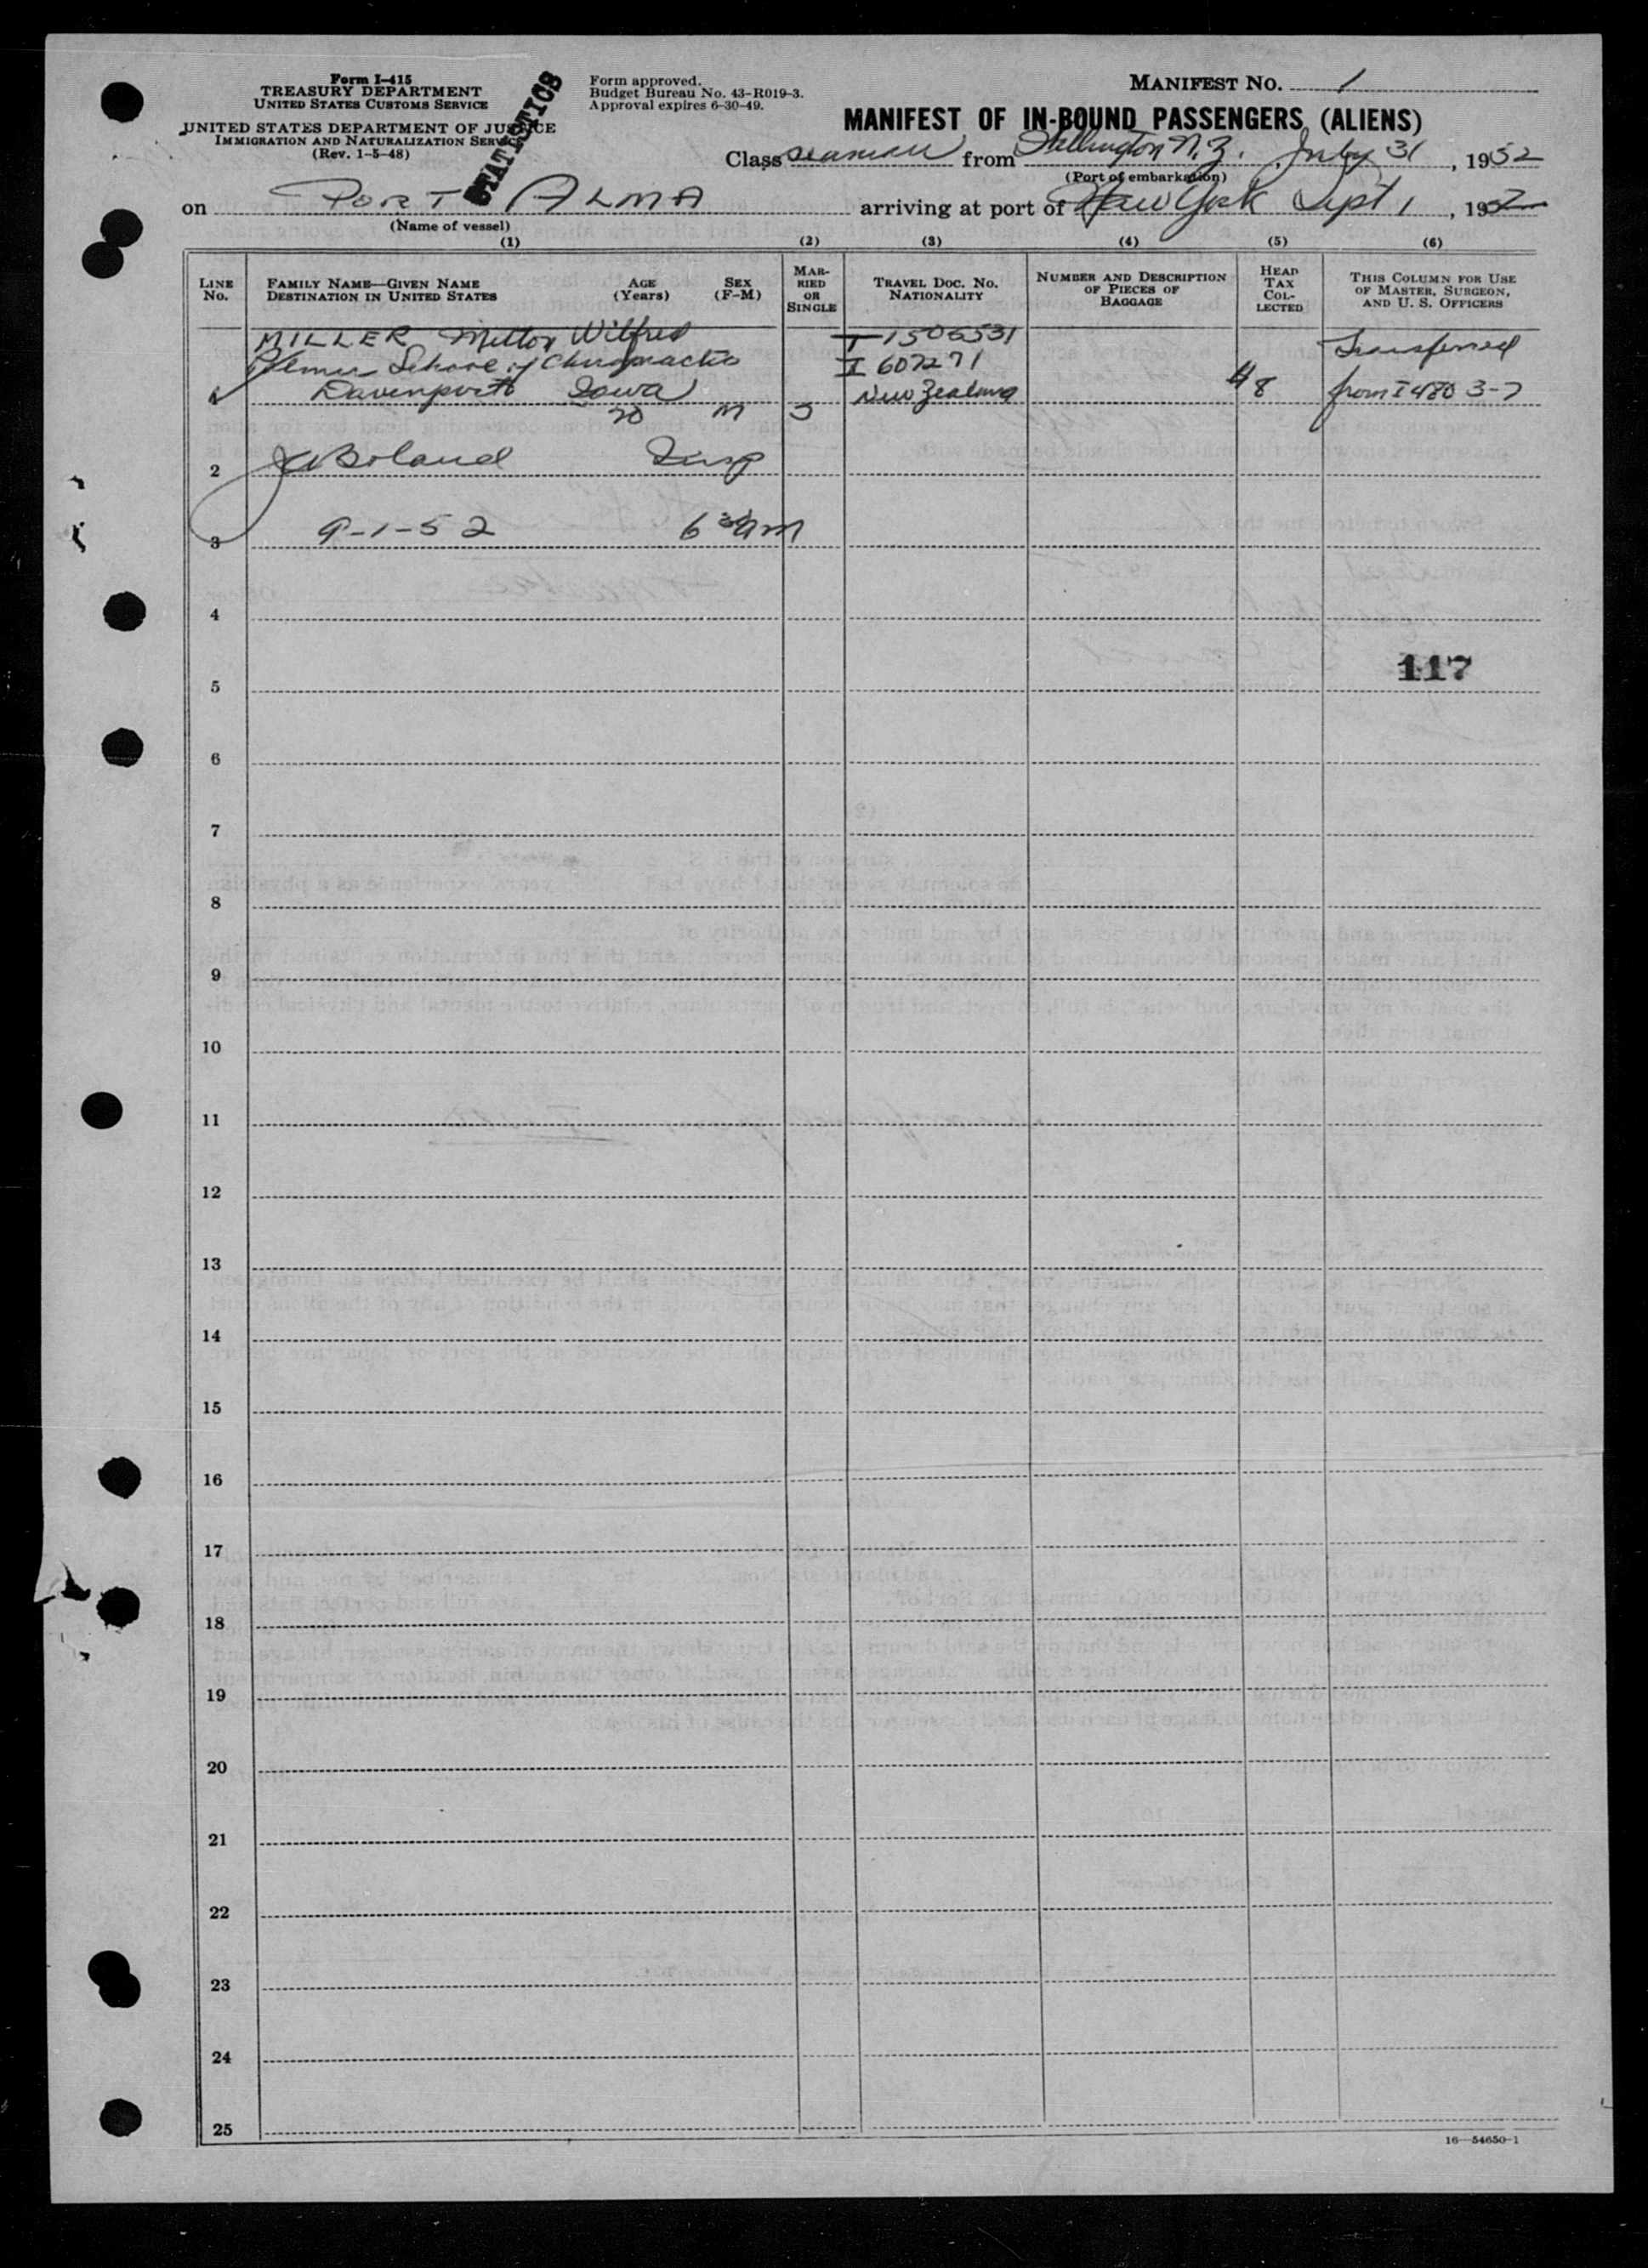 Form I-415
TREASURY DEPARTMENT
UNITED STATES CUSTOMS SERVICE
UNITED STATES DEPARTMENT OF JUSTICE
IMMIGRATION AND NATURALIZATION SERVICE
(Rev. 1-5-48)
STATISTICS
Form approved.
Budget Bureau No. 43-R019-3.
Approval expires 6-30-49.
MANIFEST NO. 1
MANIFEST OF IN-BOUND PASSENGERS (ALIENS)
Class seaman from Wellington N.Z., July 31, 1952
(Port of embarkation)
on PORT ALMA arriving at port of New York Sept 1, 1952
(Name of vessel)
(1) (2) (3) (4) (5) (6)
LINE No.
FAMILY NAME—GIVEN NAME
DESTINATION IN UNITED STATES
AGE (Years)
SEX (F-M)
MARRIED OR SINGLE
TRAVEL DOC. NO.
NATIONALITY
NUMBER AND DESCRIPTION OF PIECES OF BAGGAGE
HEAD TAX COLLECTED
THIS COLUMN FOR USE OF MASTER, SURGEON, AND U. S. OFFICERS
MILLER Milton Wilfred T-1506531 Transferred
Palmer School of Chiropractic I 607271
1 Davenport Iowa New Zealand $8 from I 480 3-7
20 M S
2 J Boland Insp
3 9-1-52 6 30 am
4
117
5
6
7
8
9
10
11
12
13
14
15
16
17
18
19
20
21
22
23
24
25
16—54650-1